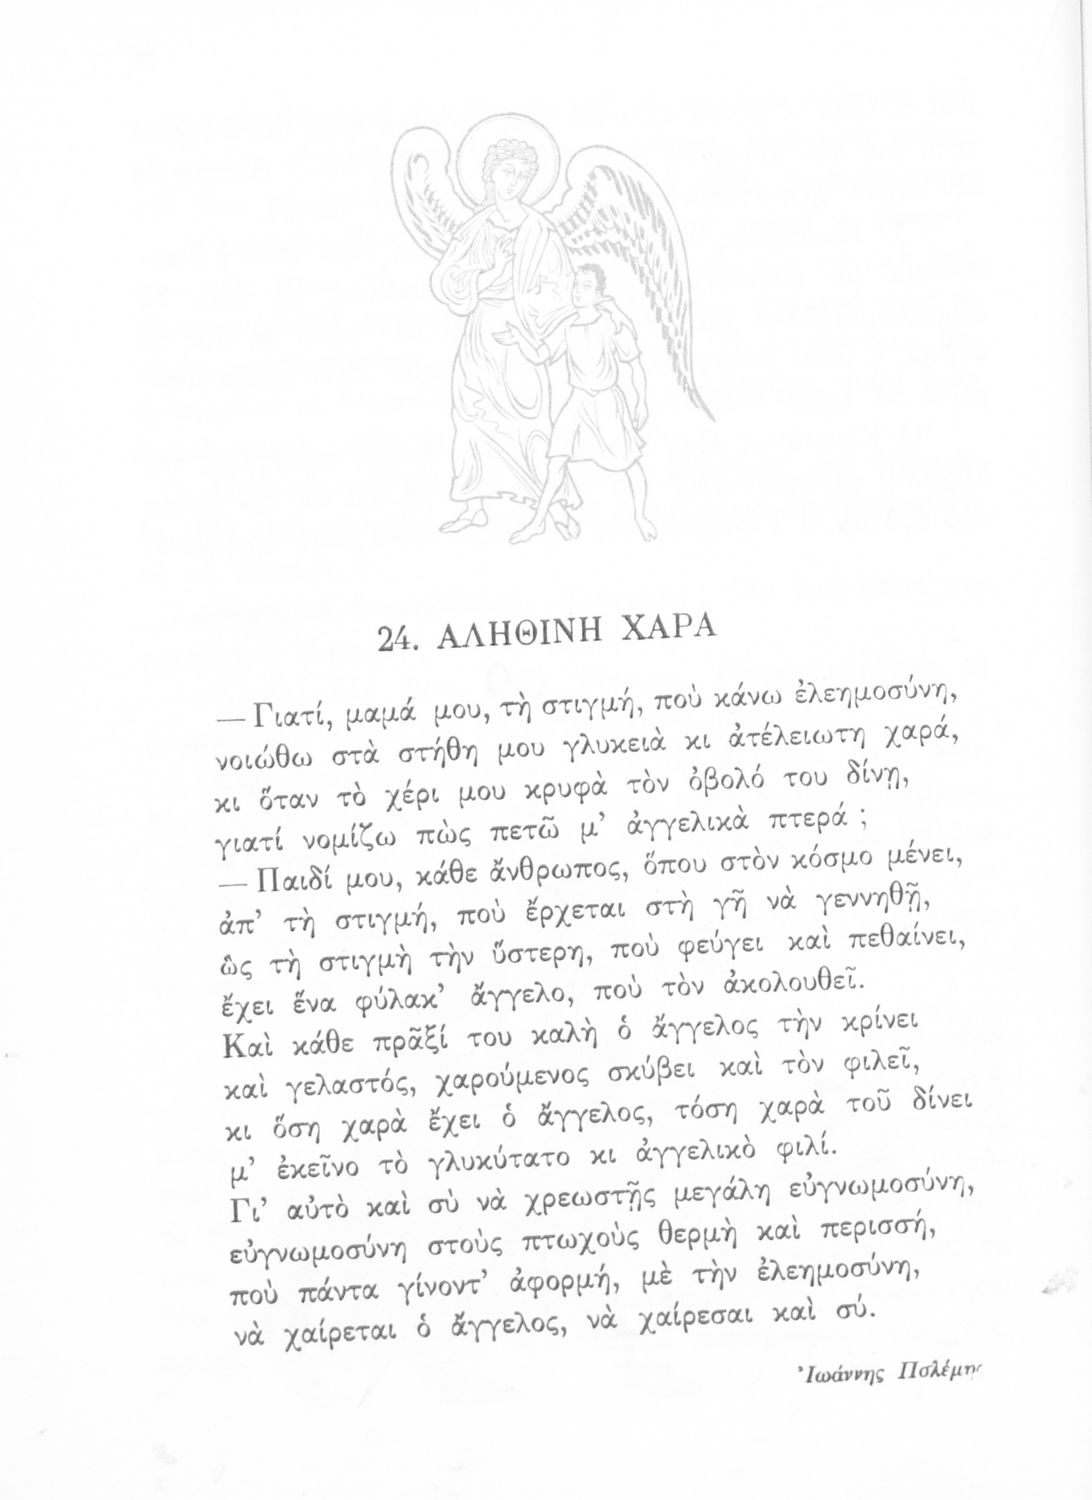 24. ΑΛΗΘΙΝΗ ΧΑΡΑ
— Γιατί, μαμά μου, τὴ στιγμή, ποὺ κάνω ἐλεημοσύνη,
νοιώθω στὰ στήθη μου γλυκειὰ κι ἀτέλειωτη χαρά,
κι ὅταν τὸ χέρι μου κρυφὰ τὸν ὀβολό του δίνῃ,
γιατί νομίζω πὼς πετῶ μ’ ἀγγελικὰ πτερά ;
— Παιδί μου, κάθε ἄνθρωπος, ὅπου στὸν κόσμο μένει,
ἀπ’ τὴ στιγμή, ποὺ ἔρχεται στὴ γῆ νὰ γεννηθῇ,
ὣς τὴ στιγμὴ τὴν ὕστερη, ποὺ φεύγει καὶ πεθαίνει,
ἔχει ἕνα φύλακ’ ἄγγελο, ποὺ τὸν ἀκολουθεῖ.
Καὶ κάθε πρᾶξί του καλὴ ὁ ἄγγελος τὴν κρίνει
καὶ γελαστός, χαρούμενος σκύβει καὶ τὸν φιλεῖ,
κι ὅση χαρὰ ἔχει ὁ ἄγγελος, τόση χαρὰ τοῦ δίνει
μ’ ἐκεῖνο τὸ γλυκύτατο κι ἀγγελικὸ φιλί.
Γι’ αὐτὸ καὶ σὺ νὰ χρεωστῇς μεγάλη εὐγνωμοσύνη,
εὐγνωμοσύνη στοὺς πτωχοὺς θερμὴ καὶ περισσή,
ποὺ πάντα γίνοντ’ ἀφορμή, μὲ τὴν ἐλεημοσύνη,
νὰ χαίρεται ὁ ἄγγελος, νὰ χαίρεσαι καὶ σύ.
Ἰωάννης Πολέμης